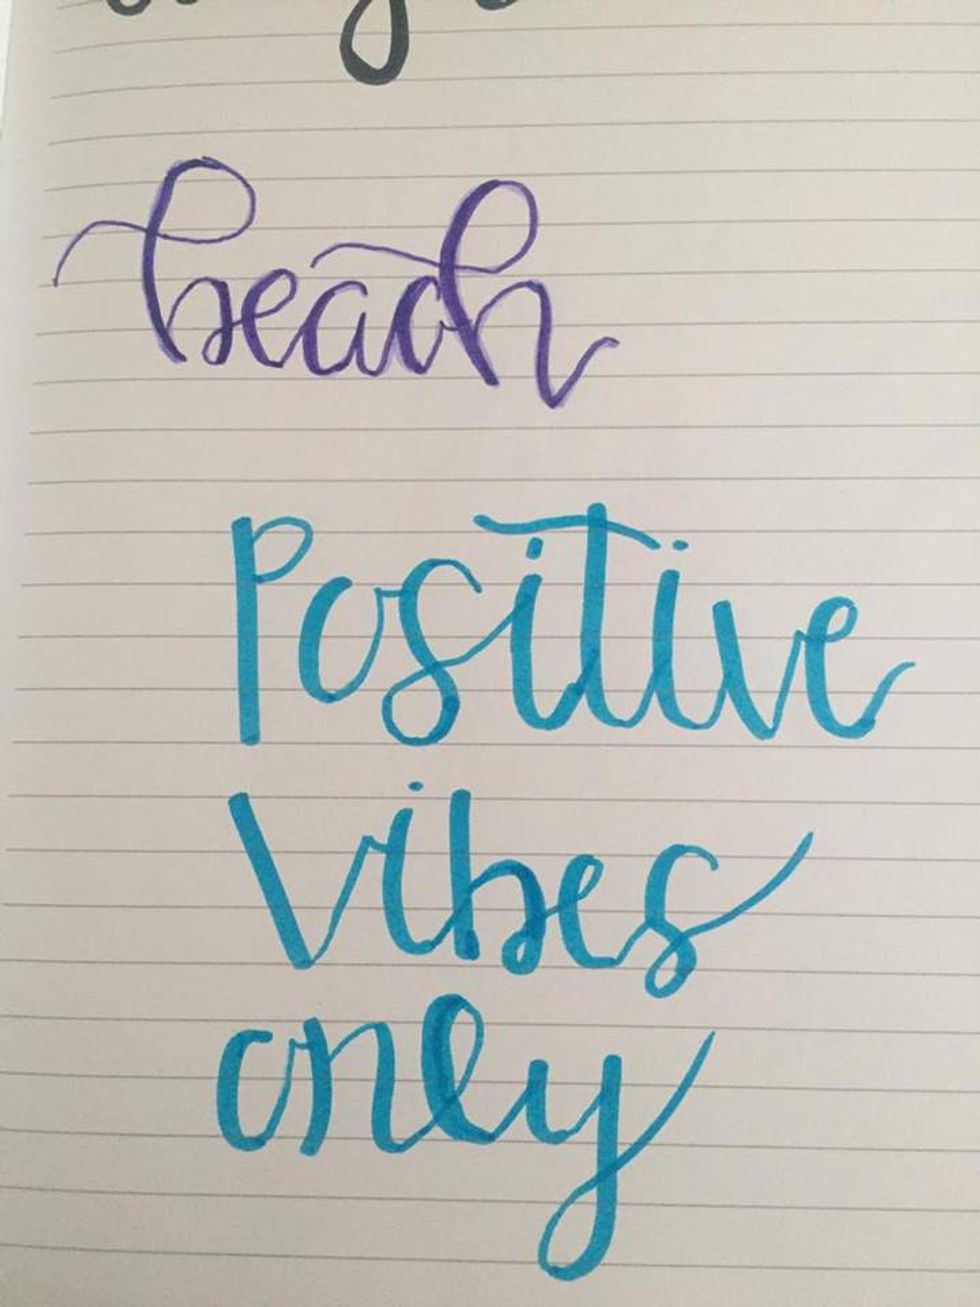 beach
Positive
Vibes
only